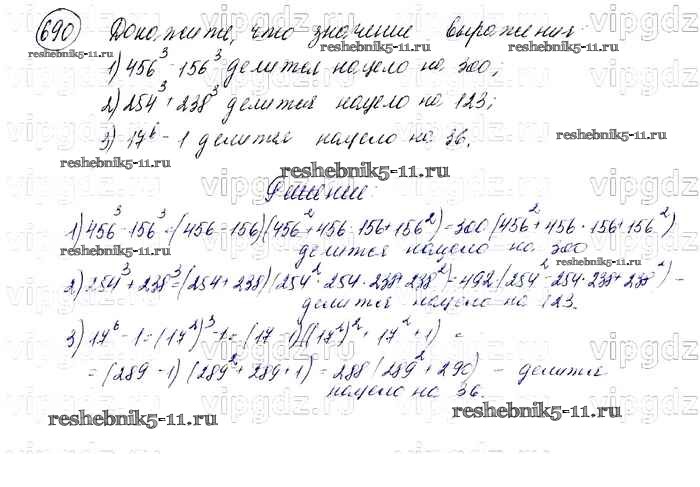 690 Докажите, что значение выражения:
1) 456³ - 156³ делится нацело на 300;
2) 254³ + 238³ делится нацело на 123;
3) 17⁶ - 1 делится нацело на 36.
Решение:
1) 456³ - 156³ = (456 - 156)(456² + 456 · 156 + 156²) = 300 (456² + 456 · 156 + 156²)
делится нацело на 300
2) 254³ + 238³ = (254 + 238)(254² - 254 · 238 + 238²) = 492 (254² - 254 · 238 + 238²) -
делится нацело на 123.
3) 17⁶ - 1 = (17²)³ - 1 = (17 - 1)((17²)² + 17² + 1) =
= (289 - 1)(289² + 289 + 1) = 288 (289² + 290) - делится
нацело на 36.
reshebnik5-11.ru
reshebnik5-11.ru
reshebnik5-11.ru
reshebnik5-11.ru
reshebnik5-11.ru
reshebnik5-11.ru
reshebnik5-11.ru
vipgdz